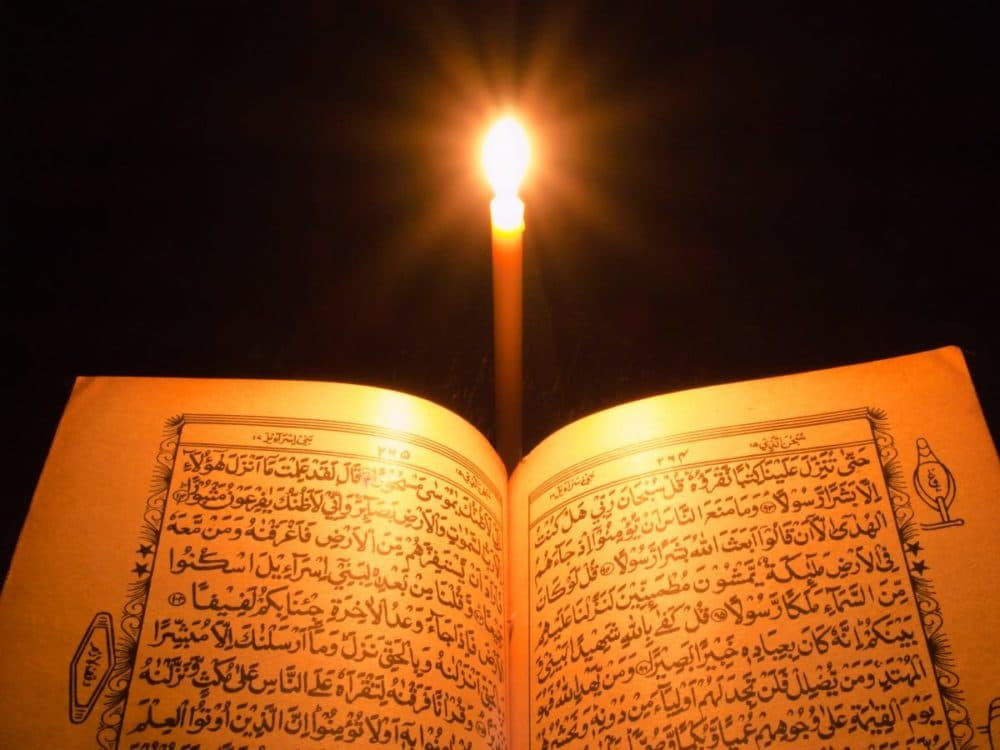 سُبْحٰنَ الَّذِيْ ١٥
٢٦٤
حَتّٰى تُنَزِّلَ عَلَيْنَا كِتٰبًا نَّقْرَؤُهٗ قُلْ سُبْحَانَ رَبِّيْ هَلْ كُنْتُ
اِلَّا بَشَرًا رَّسُوْلًا ۹۳ وَمَا مَنَعَ النَّاسَ اَنْ يُّؤْمِنُوْٓا اِذْ جَآءَهُمُ
الْهُدٰٓى اِلَّآ اَنْ قَالُوْٓا اَبَعَثَ اللّٰهُ بَشَرًا رَّسُوْلًا ۹۴ قُلْ لَّوْ كَانَ
فِى الْاَرْضِ مَلٰٓئِكَةٌ يَّمْشُوْنَ مُطْمَئِنِّيْنَ لَنَزَّلْنَا عَلَيْهِمْ
مِّنَ السَّمَآءِ مَلَكًا رَّسُوْلًا ۹۵ قُلْ كَفٰى بِاللّٰهِ شَهِيْدًۢا بَيْنِيْ وَ
بَيْنَكُمْ اِنَّهٗ كَانَ بِعِبَادِهٖ خَبِيْرًۢا بَصِيْرًا ۹۶ وَمَنْ يَّهْدِ اللّٰهُ فَهُوَ
الْمُهْتَدِ وَمَنْ يُّضْلِلْ فَلَنْ تَجِدَ لَهُمْ اَوْلِيَآءَ مِنْ دُوْنِهٖ وَنَحْشُرُهُمْ
يَوْمَ الْقِيٰمَةِ عَلٰى وُجُوْهِهِمْ عُمْيًا وَّبُكْمًا وَّصُمًّا
بَنِيْٓ اِسْرَآءِيْل ١٧
٢٦٥
لَاَظُنُّكَ يٰمُوْسٰى مَسْحُوْرًا ۱۰۱ قَالَ لَقَدْ عَلِمْتَ مَآ اَنْزَلَ هٰٓؤُلَآءِ
رَبُّ السَّمٰوٰتِ وَالْاَرْضِ بَصَآئِرَ وَاِنِّيْ لَاَظُنُّكَ يٰفِرْعَوْنُ مَثْبُوْرًا ۱۰۲
اَنْ يَّسْتَفِزَّهُمْ مِّنَ الْاَرْضِ فَاَغْرَقْنٰهُ وَمَنْ مَّعَهٗ
وَّقُلْنَا مِنْۢ بَعْدِهٖ لِبَنِيْٓ اِسْرَآءِيْلَ اسْكُنُوا
الْاَرْضَ فَاِذَا جَآءَ وَعْدُ الْاٰخِرَةِ جِئْنَا بِكُمْ لَفِيْفًا ۱۰۴
اَنْزَلْنٰهُ وَبِالْحَقِّ نَزَلَ وَمَآ اَرْسَلْنٰكَ اِلَّا مُبَشِّرًا
وَقُرْاٰنًا فَرَقْنٰهُ لِتَقْرَاَهٗ عَلَى النَّاسِ عَلٰى مُكْثٍ وَّنَزَّلْنٰهُ
اٰمِنُوْا بِهٖٓ اَوْ لَا تُؤْمِنُوْا اِنَّ الَّذِيْنَ اُوْتُوا الْعِلْمَ